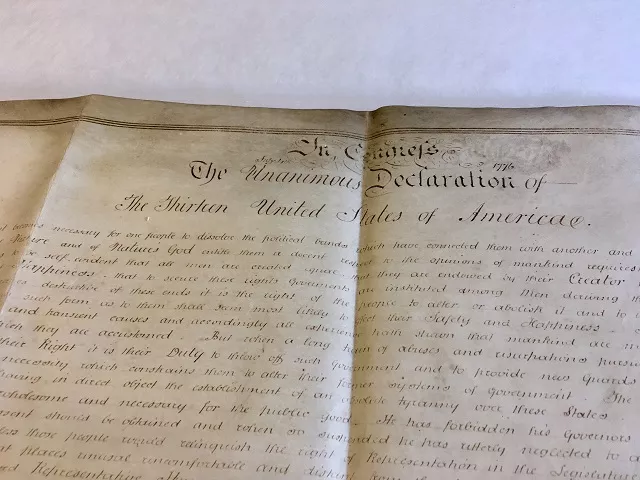 In Congress
July 4th 1776
The Unanimous Declaration of
The Thirteen United States of America.
becomes necessary for one people to dissolve the political bands which have connected them with another and
Nature and of Natures God entitle them a decent respect to the opinions of mankind requires
to be self evident that all men are created equal that they are endowed by their Creator
Happiness that to secure these rights Governments are instituted among Men deriving
destructive of these ends it is the right of the people to alter or abolish it and to
such form as to them shall seem most likely to effect their Safety and Happiness
and transient causes and accordingly all experience hath shewn that mankind are
which they are accustomed But when a long train of abuses and usurpations pursu
their Right it is their Duty to throw off such Government and to provide new Guards
necessity which constrains them to alter their former Systems of Government The
having in direct object the establishment of an absolute tyranny over these States
wholesome and necessary for the public good He has forbidden his Governors
assent should be obtained and when so suspended he has utterly neglected to
less those people would relinquish the right of Representation in the Legislature
at places unusual uncomfortable and distant from
Representative